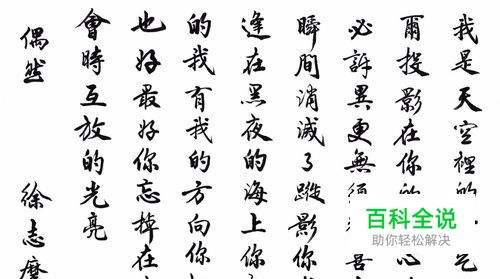 我是天空裡的
爾投影在你的
必訝異更無須
瞬間消滅了蹤影你
逢在黑夜的海上你
的我有我的方向你
也好最好你忘掉在
會時互放的光亮
偶然 徐志摩
百科全说
助你轻松解决